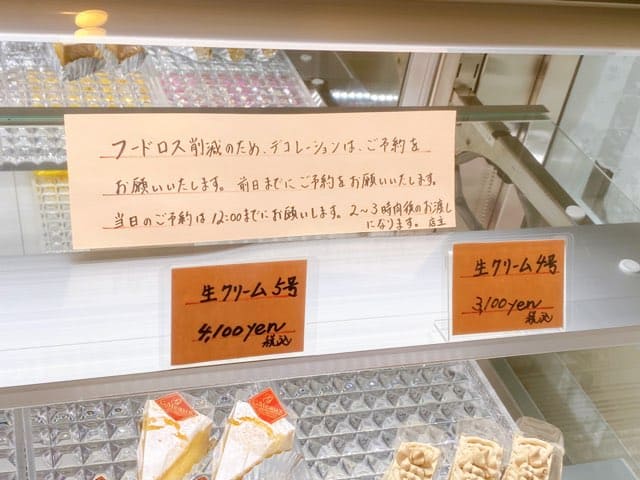 フードロス削減のため、デコレーションは、ご予約を
お願いいたします。前日までにご予約をお願いいたします。
当日のご予約は12:00までにお願いします。2〜3時間後のお渡し
になります。店主
生クリーム5号
4,100yen
税込
生クリーム4号
3,100yen
税込